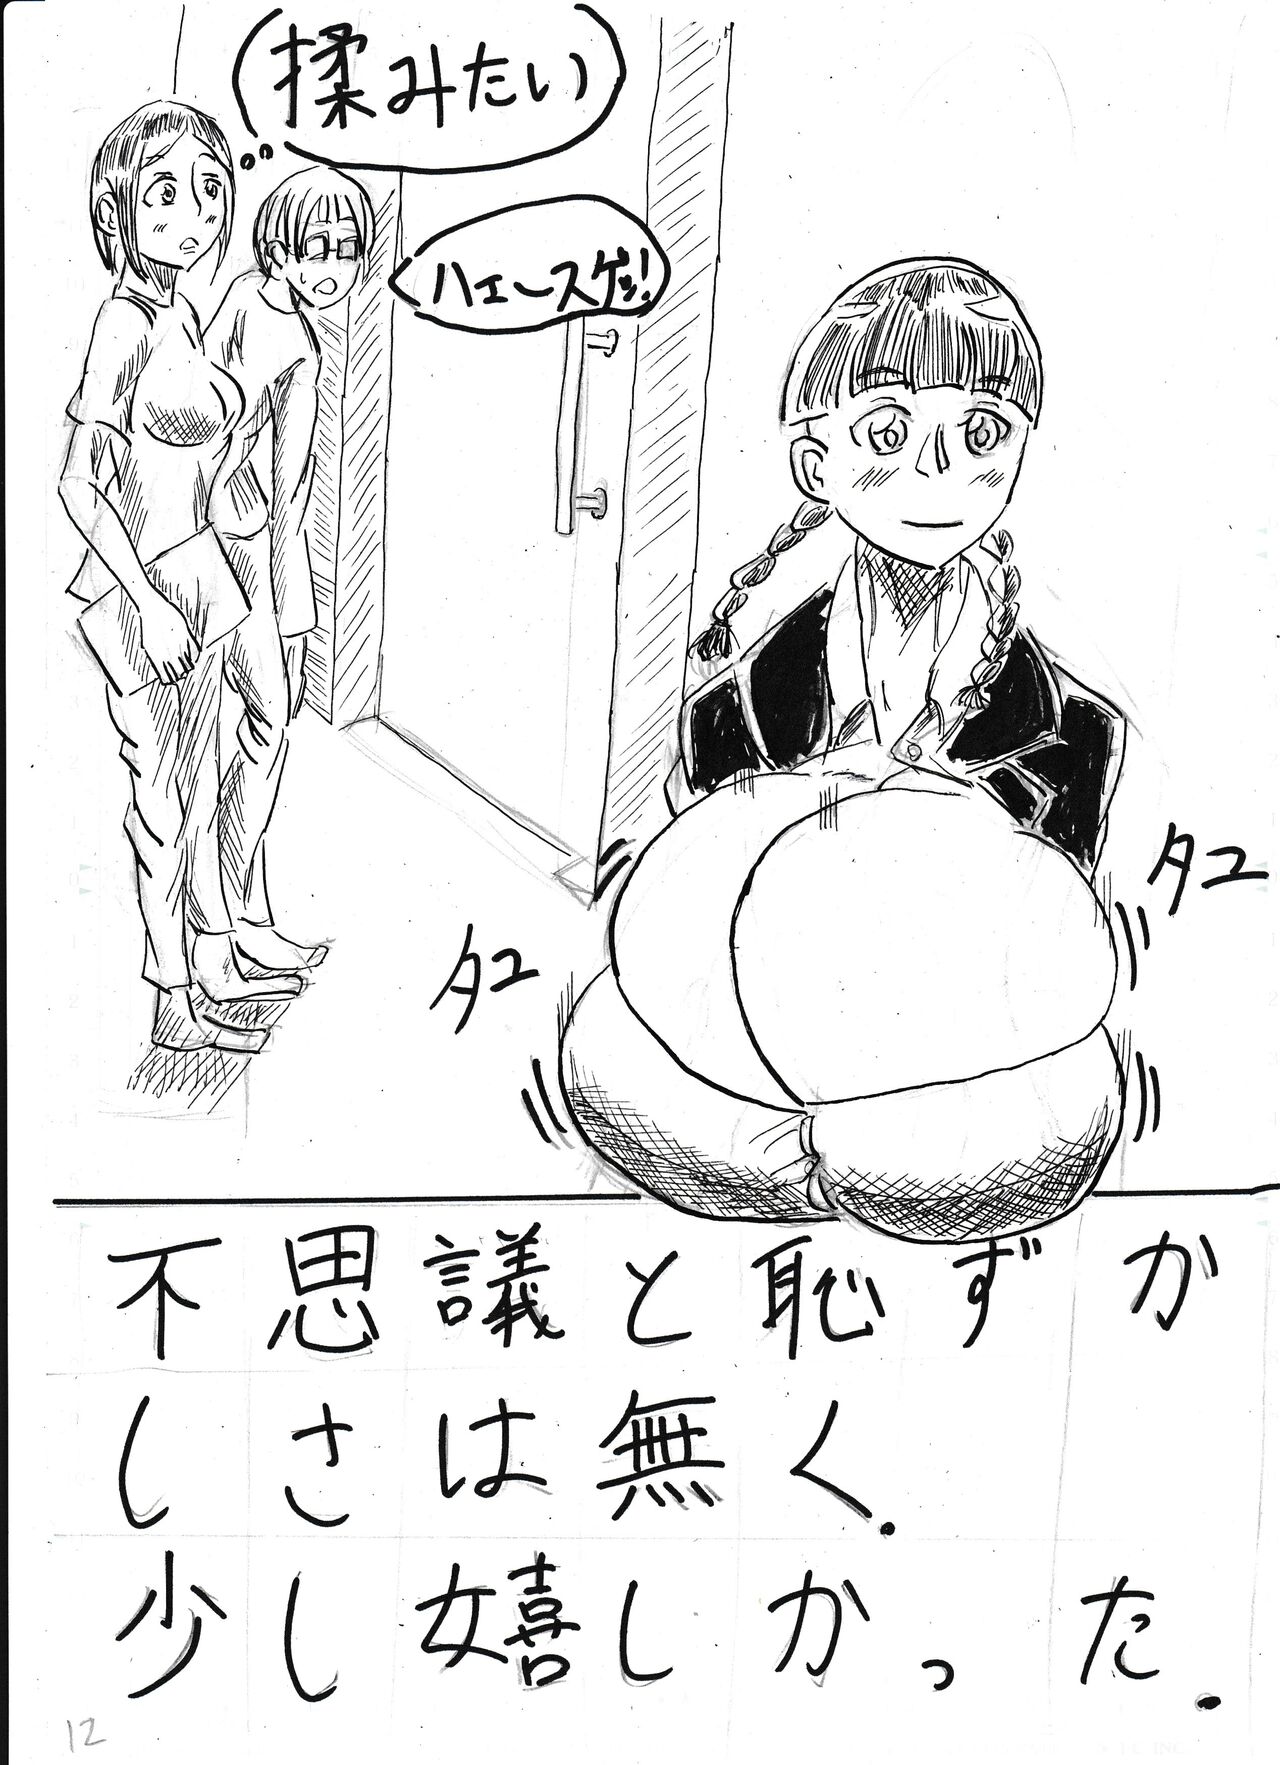 揉みたい
ハエースゲッ!
タユ
タユ
不思議と恥ずか
しさは無く.
少し嬉しかった.
12